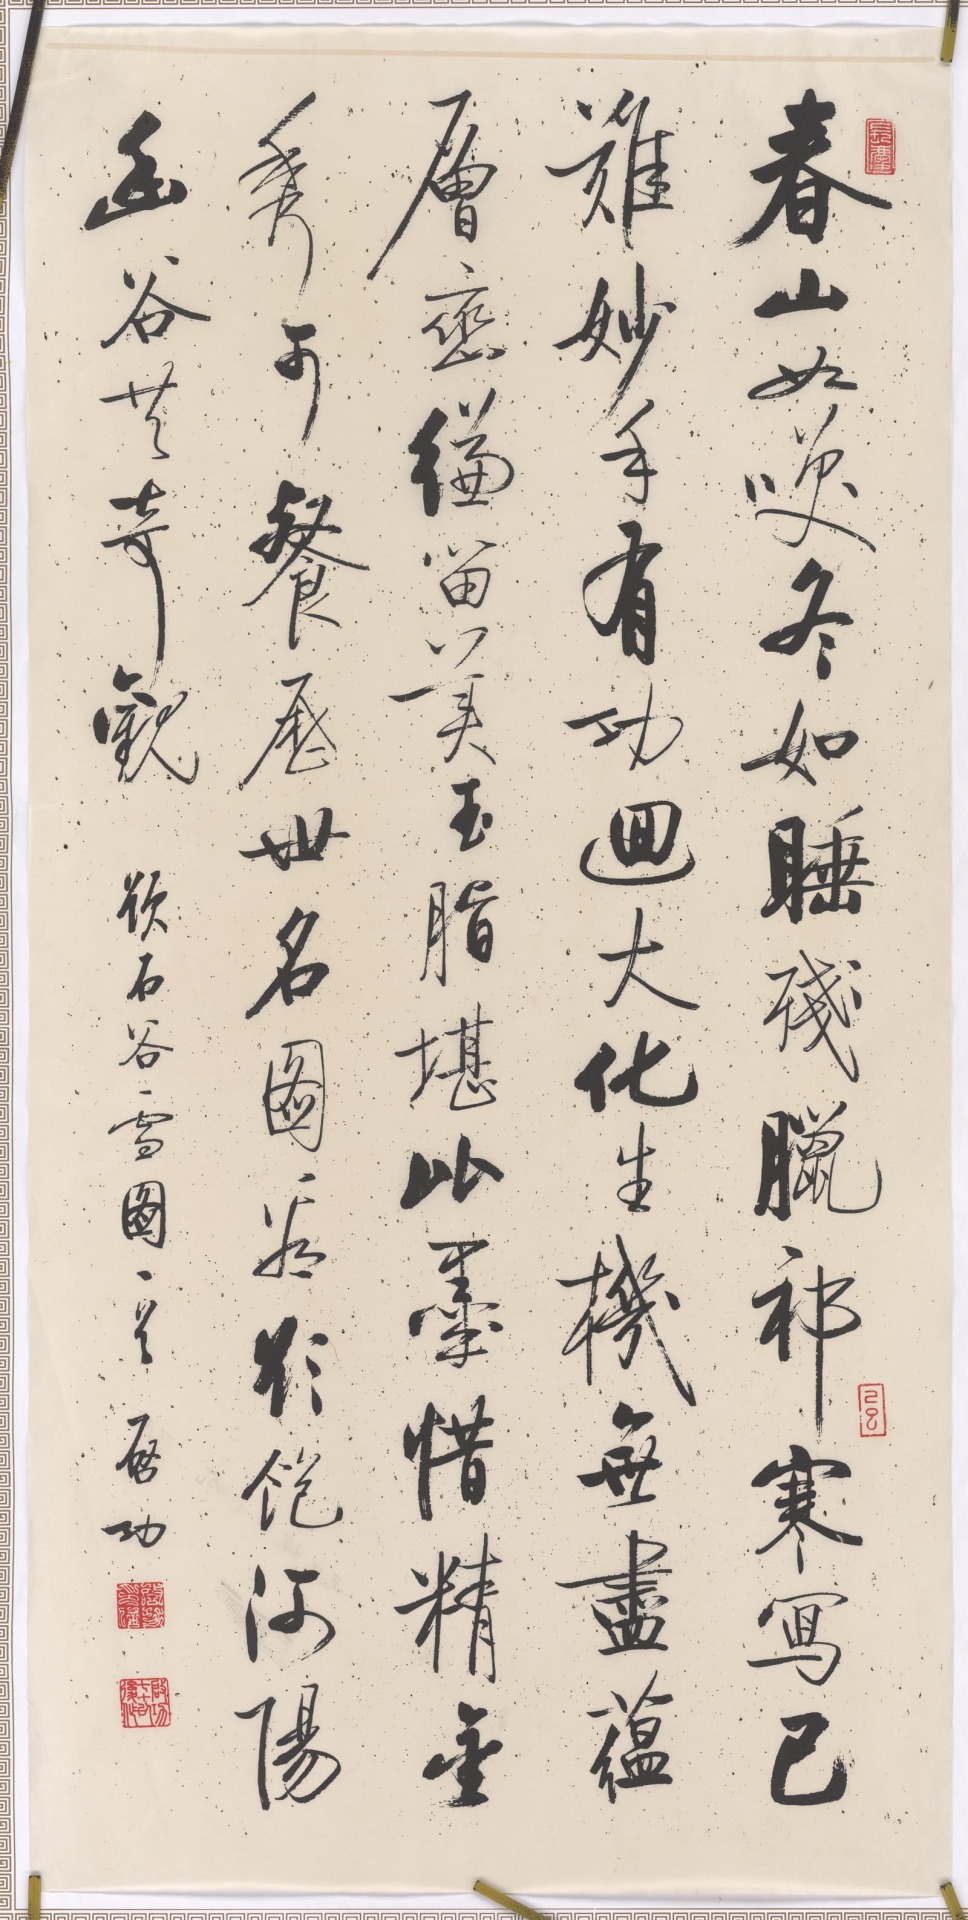 春山如笑冬如睡殘臘祁寒寫已
難妙手有功迴大化生機無盡蘊
層巒縑留美玉脂堪比墨惜精金
秀可餐歷世名圖看欲飽河陽
幽谷共奇觀
欣石谷雪圖一首 啟功